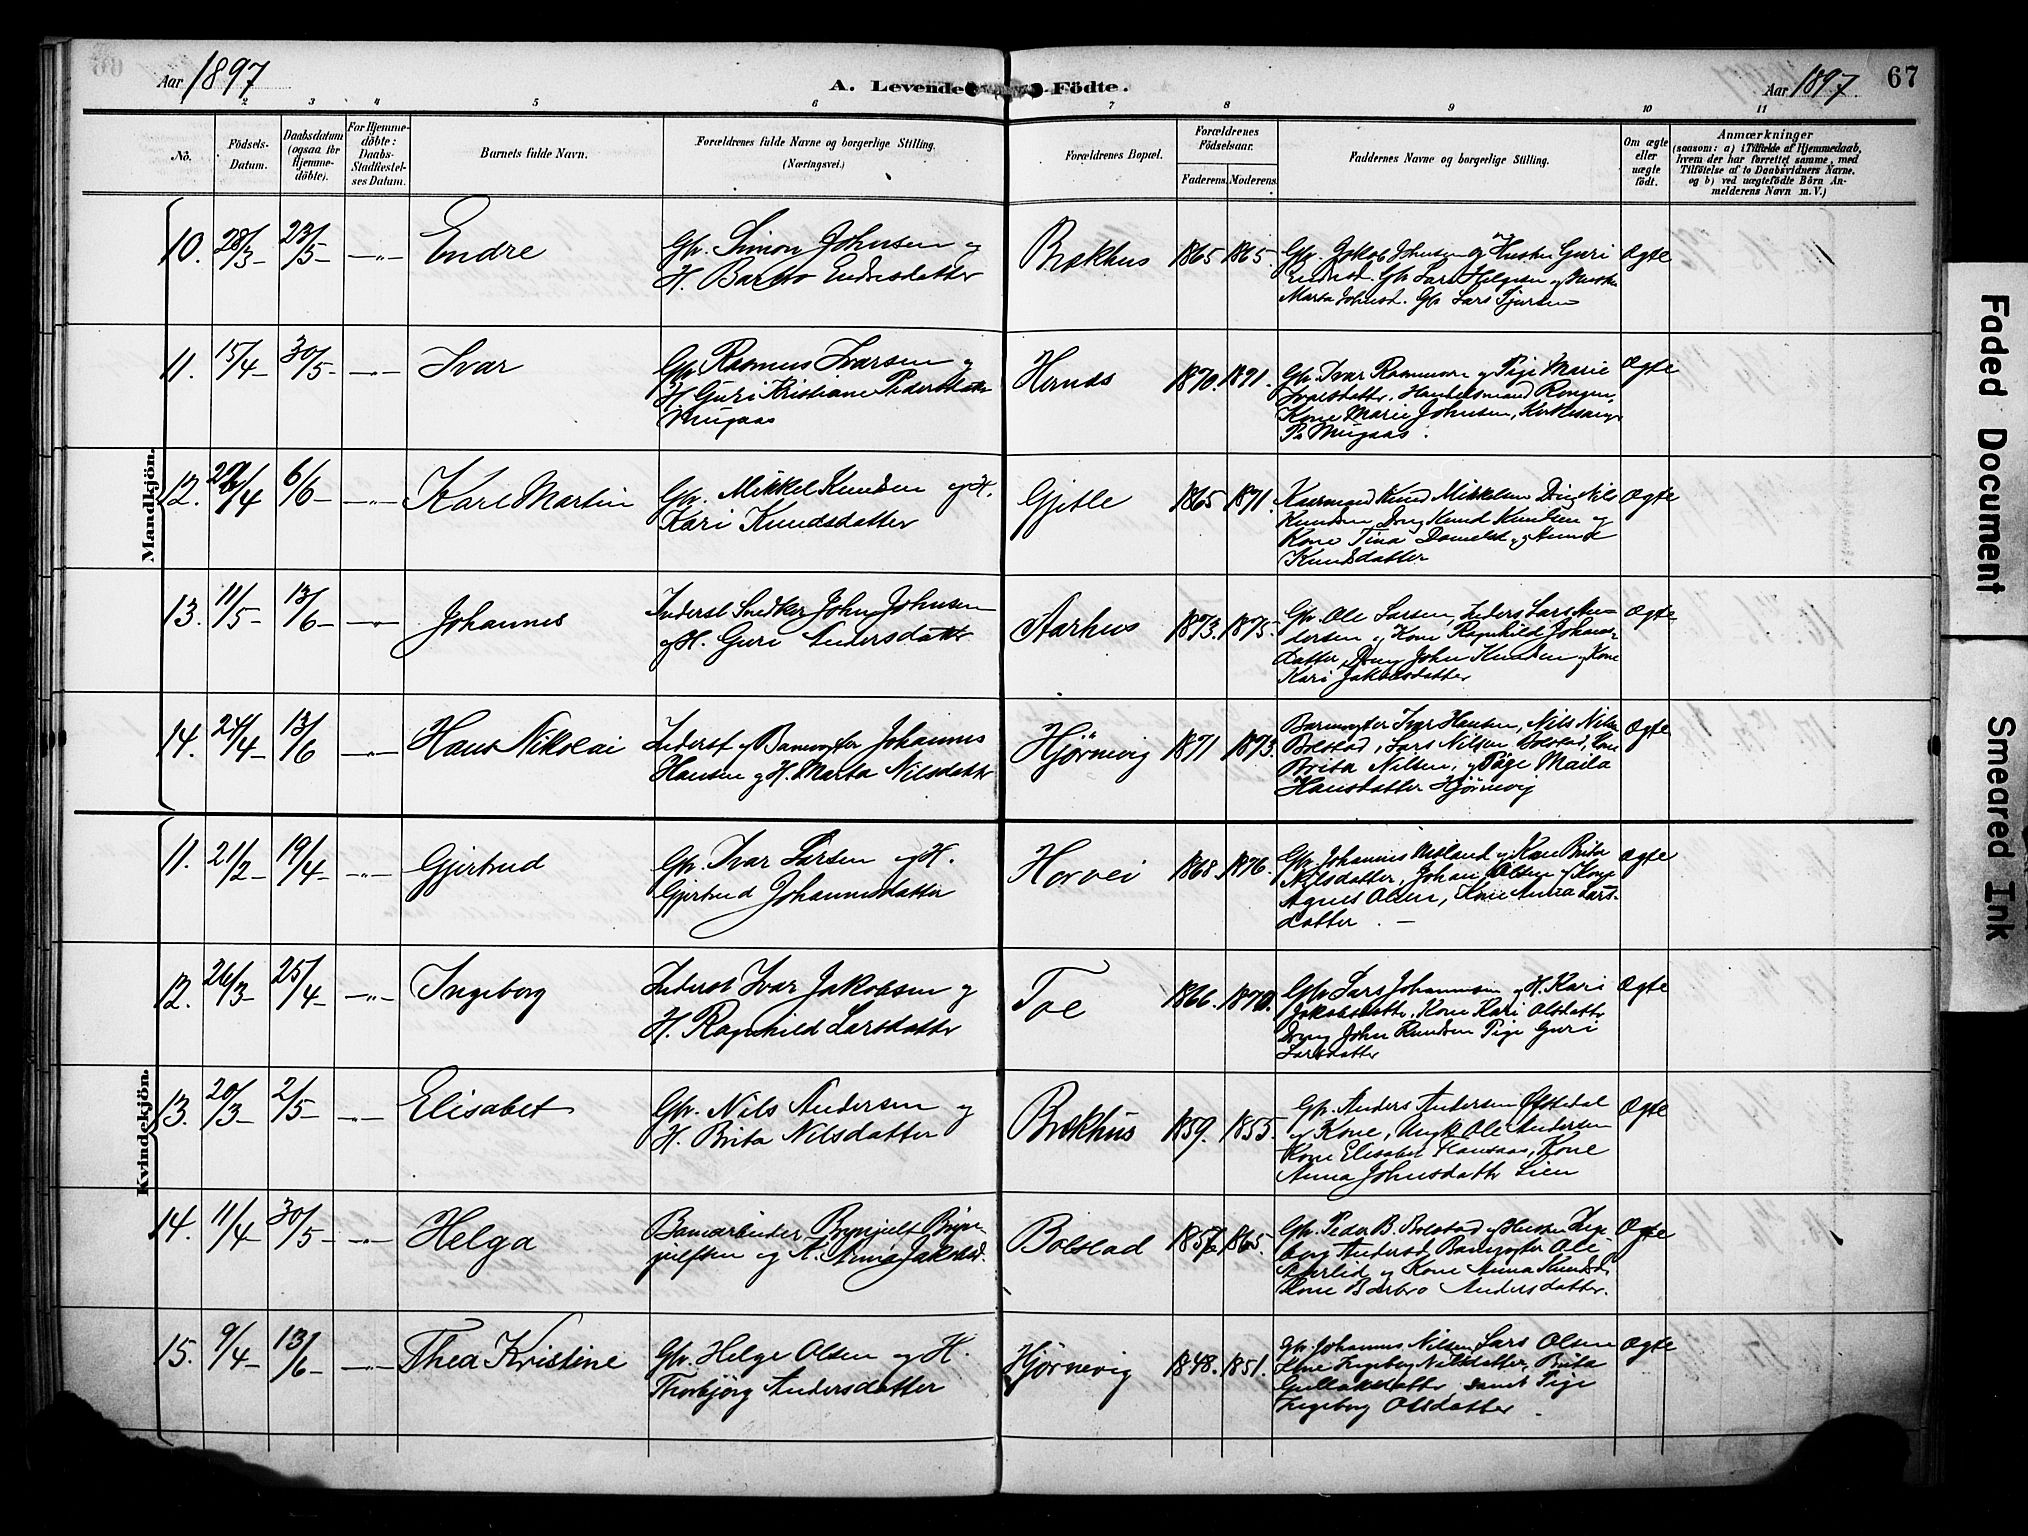 Aar 1897
A. Levende Födte.
Aar 1897. 67
1 2 3 4 5 6 7 8 9 10 11
No.
Födsels-
Datum.
Daabsdatum
(ogsaa for
Hjemme-
döbte).
For Hjemme-
döbte:
Daabs-
Stadfæstel-
ses Datum.
Barnets fulde Navn.
Forældrenes fulde Navne og borgerlige Stilling.
(Næringsvei.)
Forældrenes Bopæl.
Forældrenes
Födselsaar.
Faderens. Moderens.
Faddernes Navne og borgerlige Stilling.
Om ægte
eller
uægte
født.
Anmærkninger
(saasom: a) i Tilfælde af Hjemmedaab,
hvem der har forrettet samme, med
Tilföielse af to Daabsvidners Navne,
og b) ved uægtefödte Börn An-
melderens Navn m. V.)
Mandkjön.
10. 28/3 23/5 Endre
Gbr. Simon Johnsen og
H. Barbro Endresdatter
Brækhus 1865 1865.
Gbr. Jakob Johnsen og Hustru Guri
Endresd. Gbr Lars Helgesen og Hustru
Marta Johnsd. Gbr Lars
Ægte
11. 15/4 30/5 Ivar
Gbr Rasmus Ivarsen og
H. Guri Kristiane Pedersdatter
Mugaas
Hernes 1870. 1871.
Gbr. Ivar Rasmussen og Pige Marie
Ivarsdatter, Handelsmand Rongen,
Kone Marie Johnsen, Kirkesanger
P. Mugaas.
Ægte
12. 6/6 Karl Martin
Gbr. Mikkel Knudsen og H.
Kari Knudsdatter
Gjelle 1865 1871.
Kaarmand Knud Mikkelsen Dreng Nils
Knudsen Dreng Knud Knudsen og
Kone Tina Danielsd. og
Knudsdatter
Ægte
13. 11/5 13/6 Johannes
Inderst Snedker John Johnsen
og H. Guri Andersdatter
Aarhus 1873. 1875.
Gbr. Ole Larsen, Inders. Lars An-
dersen og Kone Ragnhild Johans-
datter, Dreng John Knudsen og Kone
Kari Jakobsdatter
Ægte
14. 24/4 13/6 Hans Nikolai
Inderst og Banevogter Johannes
Hansen og H. Marta Nilsdatter
Hjørnevig 1871 1873.
Banevogter Ivar Hansen, Nils Nilsen
Bolstad, Lars Nilsen Bolstad, Kone
Brita Nilsen, og Pige Maila
Hansdatter Hjørnevig
Ægte
Kvindekjön.
11. 21/2 19/4 Gjertrud
Gbr. Ivar Larsen og H.
Gjertrud Johannesdatter
Horvei 1868. 1876.
Gbr. Johannes Mæland og Kone Brita
Nilsdatter, Johan Olsen og Kone
Agnes Olsen, Kone Anna Lars-
datter.
Ægte
12. 26/3 25/4 Ingeborg
Inderst Ivar Jakobsen og
H. Ragnhild Larsdatter
Toe 1866. 1870.
Gbr Lars Johannesen og H. Kari
Jakobsdatter, Kone Kari Olsdatter
Dreng John Knudsen Pige Guri
Larsdatter
Ægte
13. 20/3 2/5 Elisabet
Gbr. Nils Andersen og
H. Brita Nilsdatter
Brækhus 1859. 1855.
Gbr. Anders Andersen Øfstedal
og Kone, Ungk. Ole Andersen
Kone Elisabet Flansaas, Kone
Anna Johnsdatter Lien
Ægte
14. 11/4 30/5 Helga
Banearbeider Brynjulf Bryn-
julfsen og H. Anna Jakobsd.
Bolstad 1857 1865.
Gbr. Peder B. Bolstad og Hustru Inge-
borg Andersd, Banevogter Ole
og Kone Anna Knudsd
Kone Barbro Andersdatter.
Ægte
15. 9/4 13/6 Thea Kristine
Gbr. Helge Olsen og H.
Thorbjörg Andersdatter
Hjørnevig 1848. 1851.
Gbr. Johannes Nilsen, Lars Olsen
Kone Ingeborg Nilsdatter, Brita
Gullaksdatter, samt Pige
Ingeborg Olsdatter.
Ægte
Faded Document
Smeared Ink